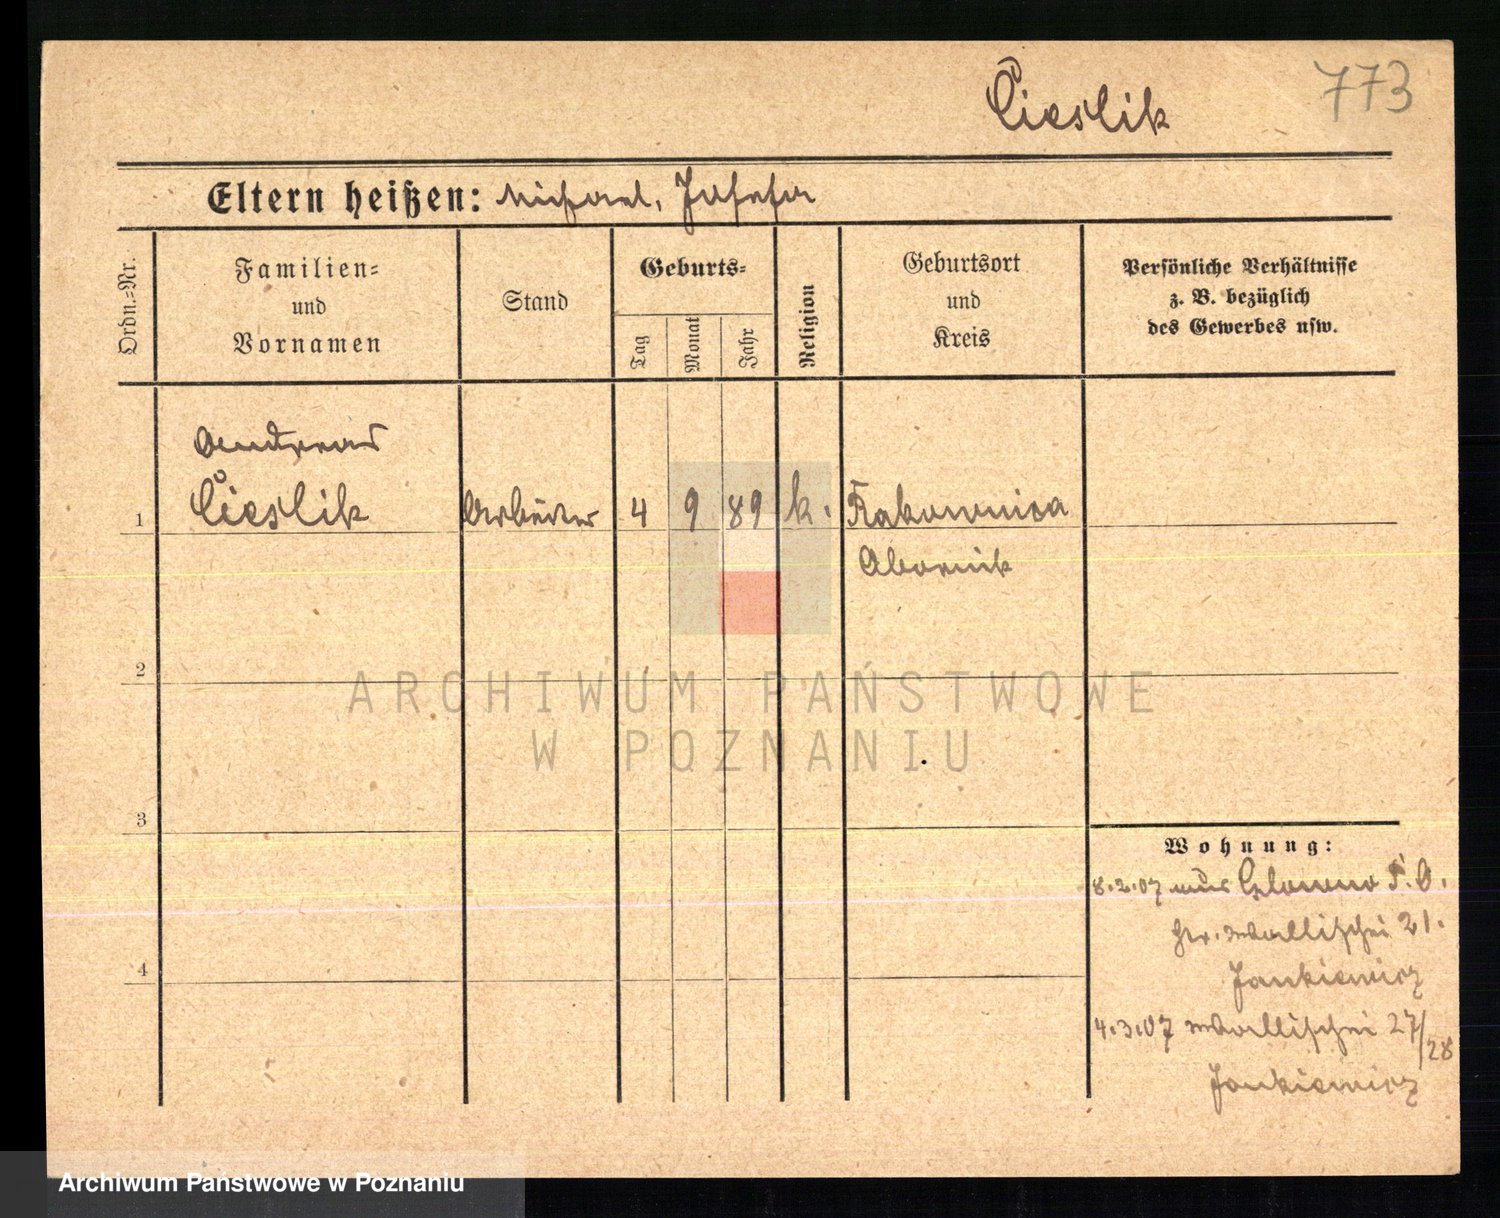 Cieslik
773
Eltern heißen: Michael, Josefa
Ordn.=Nr.
Familien=
und
Vornamen
Stand
Geburts=
Tag
Monat
Jahr
Religion
Geburtsort
und
Kreis
Persönliche Verhältnisse
z. B. bezüglich
des Gewerbes usw.
Andreas
1 Cieslik Arbeiter 4 9 89 k. Rakownica
Obornik
2
3
4
Wohnung:
8.2.07 aus Glowno P. O.
Wallischei 21.
Jankiewicz
4.3.07 Wallischei 27/28
Jankiewicz
ARCHIWUM PAŃSTWOWE
W POZNANIU
Archiwum Państwowe w Poznaniu